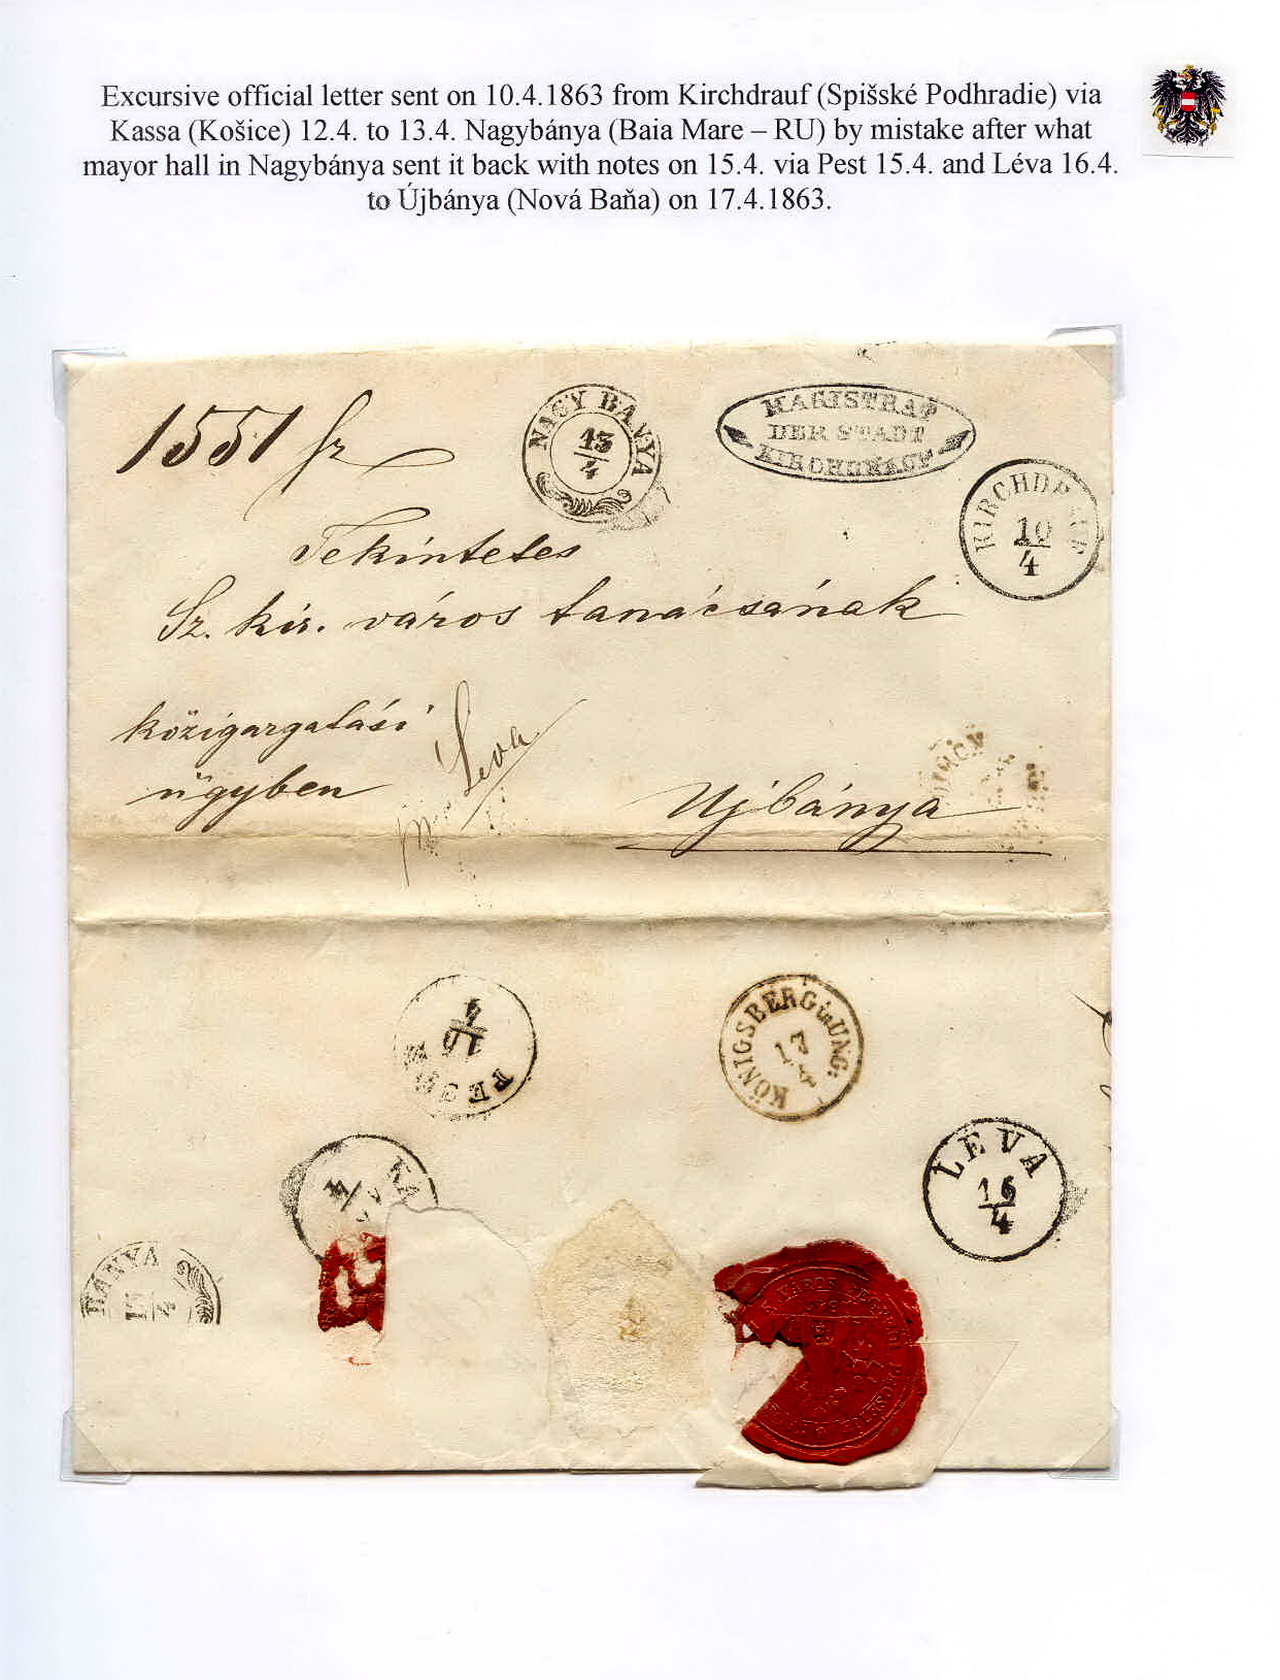 Excursive official letter sent on 10.4.1863 from Kirchdrauf (Spišské Podhradie) via
Kassa (Košice) 12.4. to 13.4. Nagybánya (Baia Mare – RU) by mistake after what
mayor hall in Nagybánya sent it back with notes on 15.4. via Pest 15.4. and Léva 16.4.
to Újbánya (Nová Baňa) on 17.4.1863.
1551
NAGY BÁNYA
13
4
MAGISTRAT
DER STADT
KIRCHDRAUF
KIRCHDRAUF
10
4
Tekintetes
Sz. kir. város tanácsának
közigazgatási
ügyben
Léva
Ujbánya
4
PEST
KÖNIGSBERG in UNG:
17
4
LÉVA
16
4
BÁNYA
15
4